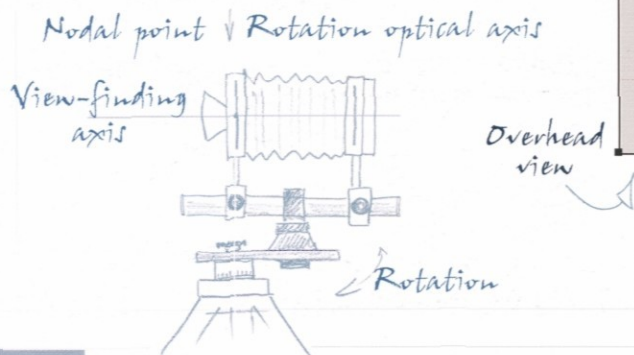 Nodal point Rotation optical axis
View-finding
axis
Overhead
view
Rotation